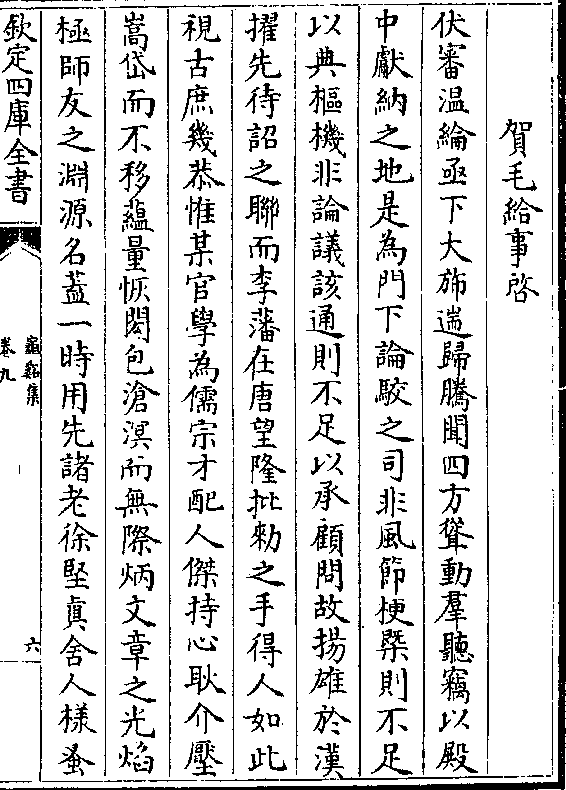 賀毛給事啓
伏審温綸亟下大斾遄歸騰聞四方聳動羣聽竊以殿
中獻納之地是為門下論駮之司非風節梗槩則不足
以典樞機非論議該通則不足以承顧問故揚雄於漢
擢先待詔之聯而李藩在唐望隆批勑之手得人如此
視古庶幾恭惟某官學為儒宗才配人傑持心耿介壓
嵩岱而不移蘊量恢閎包滄溟而無際炳文章之光焰
極師友之淵源名葢一時用先諸老徐堅真舍人様蚤
欽定四庫全書
龜谿集
卷九
六